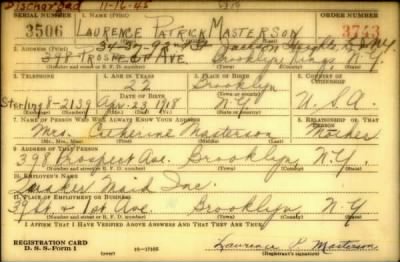 Discharged 11-16-45
SERIAL NUMBER 1. NAME (Print) ORDER NUMBER
3506 LAURENCE PATRICK MASTERSON 3743
2. ADDRESS (Print) 34-37-92nd St Jackson Heights, N.Y.
398 PROSPECT AVE. Brooklyn Kings N.Y.
(Number and street or R. F. D. number) (Town) (County) (State)
3. TELEPHONE 4. AGE IN YEARS 5. PLACE OF BIRTH 6. COUNTRY OF CITIZENSHIP
22 Brooklyn
DATE OF BIRTH
Sterling 8-2139 Apr-23 1918 N.Y. U.S.A.
(Mo.) (Day) (Yr.) (State or country)
7. NAME OF PERSON WHO WILL ALWAYS KNOW YOUR ADDRESS 8. RELATIONSHIP OF THAT PERSON
Mrs. Catherine Masterson Mother
(Mr., Mrs., Miss) (First) (Middle) (Last)
9. ADDRESS OF THAT PERSON
398 Prospect Ave. Brooklyn N.Y.
(Number and street or R. F. D. number) (Town) (County) (State)
10. EMPLOYER'S NAME
Quaker Maid Inc.
11. PLACE OF EMPLOYMENT OR BUSINESS
39 St & 1st Ave. Brooklyn N.Y
(Number and street or R. F. D. number) (Town) (County) (State)
I AFFIRM THAT I HAVE VERIFIED ABOVE ANSWERS AND THAT THEY ARE TRUE.
REGISTRATION CARD
D. S. S. Form 1 (over) 16-17105 Laurence P. Masterson
(Registrant's signature)